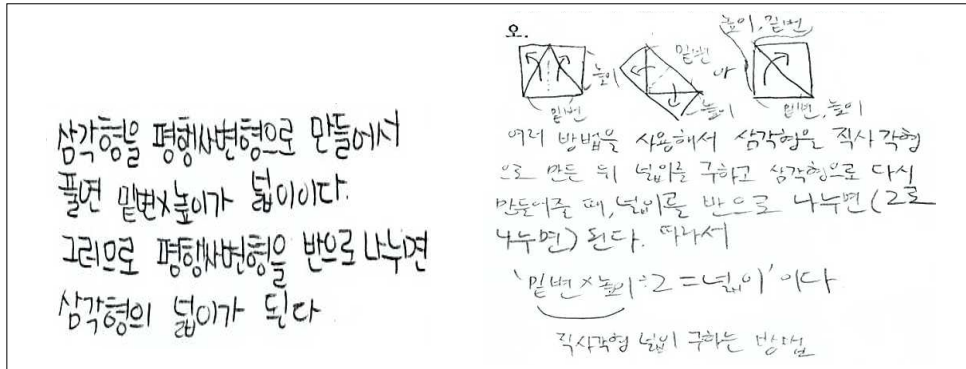 삼각형을 평행사변형으로 만들어서
풀면 밑변×높이가 넓이이다.
그러므로 평행사변형을 반으로 나누면
삼각형의 넓이가 된다
오.
높이, 밑변
밑변
높이
높이
밑변
밑변, 높이
여러 방법을 사용해서 삼각형을 직사각형
으로 만든 뒤 넓이를 구하고 삼각형으로 다시
만들어줄 때, 넓이를 반으로 나누면(2로
나누면) 된다. 따라서
'밑변×높이÷2=넓이'이다
직사각형 넓이 구하는 방법